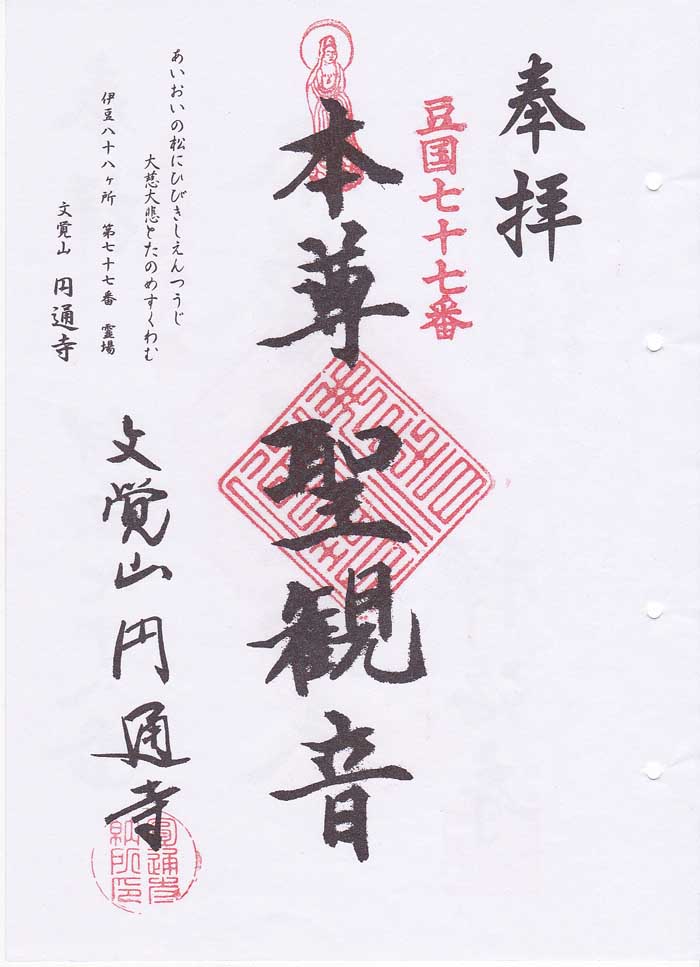 奉拝
豆国七十七番
本尊聖観音
あいおいの松にひびきしえんつうじ
大慈大悲とたのめすくわむ
伊豆八十八ヶ所　第七十七番　霊場
文覚山　円通寺
文覚山円通寺